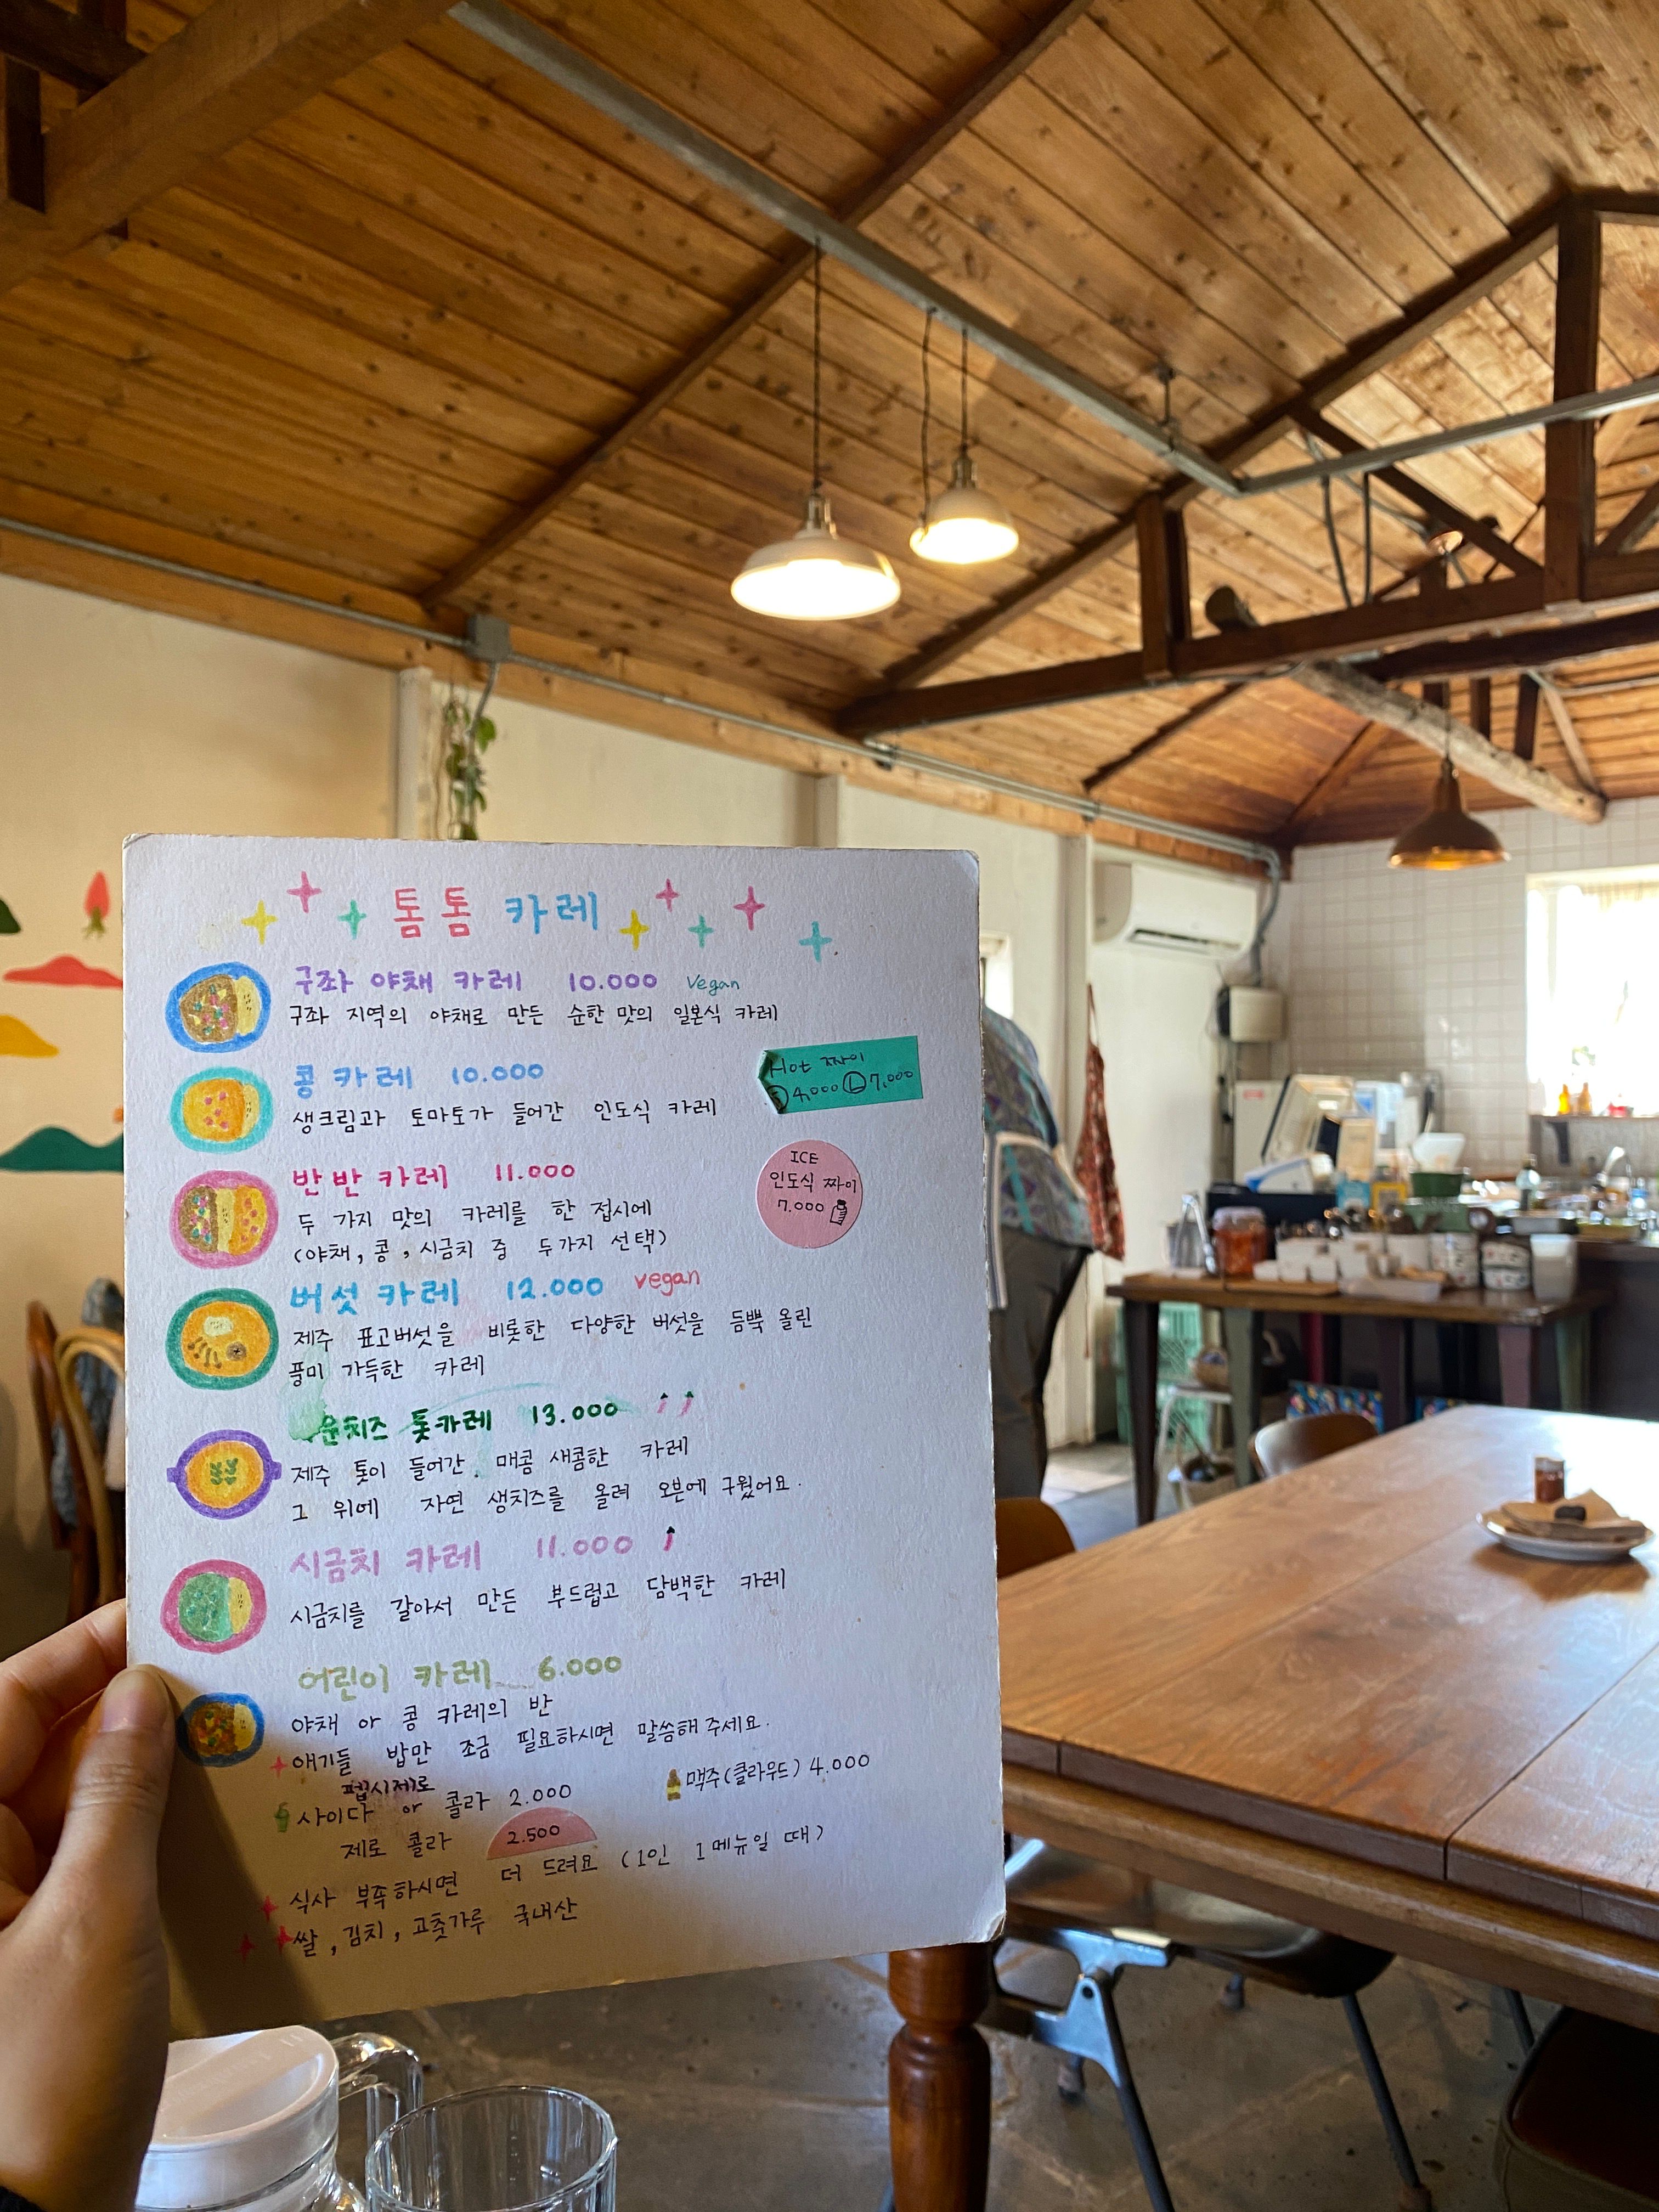 톰톰 카레
구좌 야채 카레 10.000 Vegan
구좌 지역의 야채로 만든 순한 맛의 일본식 카레
콩 카레 10.000
생크림과 토마토가 들어간 인도식 카레
Hot 짜이
4,000 Ⓛ 7,000
반반 카레 11.000
두 가지 맛의 카레를 한 접시에
(야채, 콩, 시금치 중 두가지 선택)
ICE
인도식 짜이
7.000
버섯 카레 12.000 vegan
제주 표고버섯을 비롯한 다양한 버섯을 듬뿍 올린
풍미 가득한 카레
운치즈 톳카레 13.000
제주 톳이 들어간 매콤 새콤한 카레
그 위에 자연 생치즈를 올려 오븐에 구웠어요.
시금치 카레 11.000
시금치를 갈아서 만든 부드럽고 담백한 카레
어린이 카레 6.000
야채 or 콩 카레의 반
애기들 밥만 조금 필요하시면 말씀해주세요.
펩시제로
사이다 or 콜라 2.000
맥주(클라우드) 4.000
제로 콜라 2.500
식사 부족하시면 더 드려요 (1인 1메뉴일 때)
쌀, 김치, 고춧가루 국내산